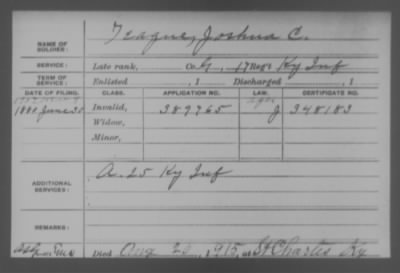 NAME OF SOLDIER: Teague, Joshua C.
SERVICE: Late rank, Co. G, 17 Reg't Ky Inf
TERM OF SERVICE: Enlisted , 1 Discharged , 1
DATE OF FILING. CLASS. APPLICATION NO. LAW. CERTIFICATE NO.
1880 June 30 Invalid, 389765 J 348183
Widow,
Minor,
ADDITIONAL SERVICES: A. 25 Ky Inf
REMARKS:
Died Aug 20, 1915, at St Charles Ky